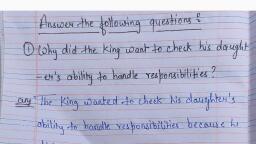 Answer the following questions :
① Why did the King want to check his daught
-er's ability to handle responsibilities ?
Ans The King wanted to check his daughter's
ability to handle responsibilities because h